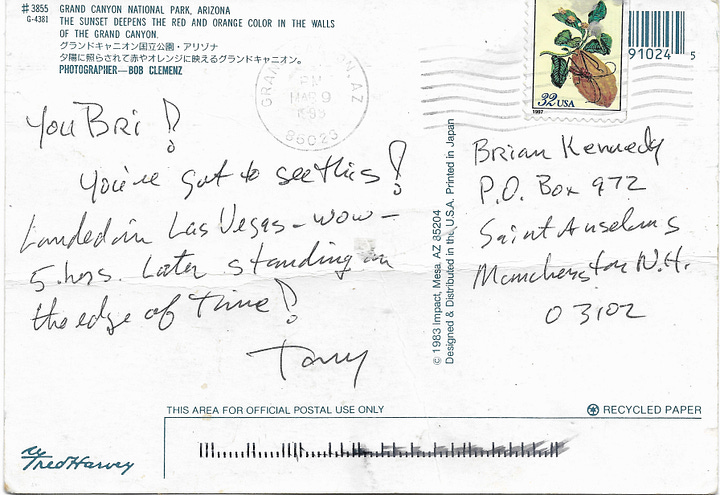 #3855 GRAND CANYON NATIONAL PARK, ARIZONA
G-4381 THE SUNSET DEEPENS THE RED AND ORANGE COLOR IN THE WALLS
OF THE GRAND CANYON.
グランドキャニオン国立公園・アリゾナ
夕陽に照らされて赤やオレンジに映えるグランドキャニオン。
PHOTOGRAPHER—BOB CLEMENZ
MAR 9
86023
32 USA
1997
91024 5
You Bri!
You've got to see this!
Landed in Las Vegas - wow -
5 hrs. Later standing on
the edge of Time!
Tony
© 1983 Impact, Mesa, AZ 85204
Designed & Distributed in the U.S.A. Printed in Japan
Brian Kennedy
P.O. Box 972
Saint Anselms
Manchester N.H.
03102
THIS AREA FOR OFFICIAL POSTAL USE ONLY
RECYCLED PAPER
Fred Harvey